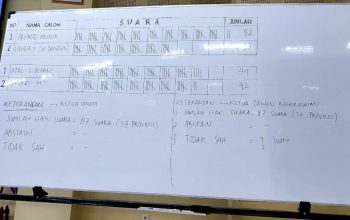 NO NAMA CALON SUARA JUMLAH
1 AKHMAD MUNIR 52
2 HENDRY CH BANGUN
1 ATAL S DEPARI 44
2 42
KETERANGAN → KETUA UMUM
JUMLAH HAK SUARA = 87 SUARA (39 PROVINSI)
ABSTAIN = -
TIDAK SAH = -
KETERANGAN → KETUA DEWAN KEHORMATAN
1 JUMLAH HAK SUARA = 87 SUARA (39 PROVINSI)
2 ABSTAIN = -
3 TIDAK SAH = 1 SUARA